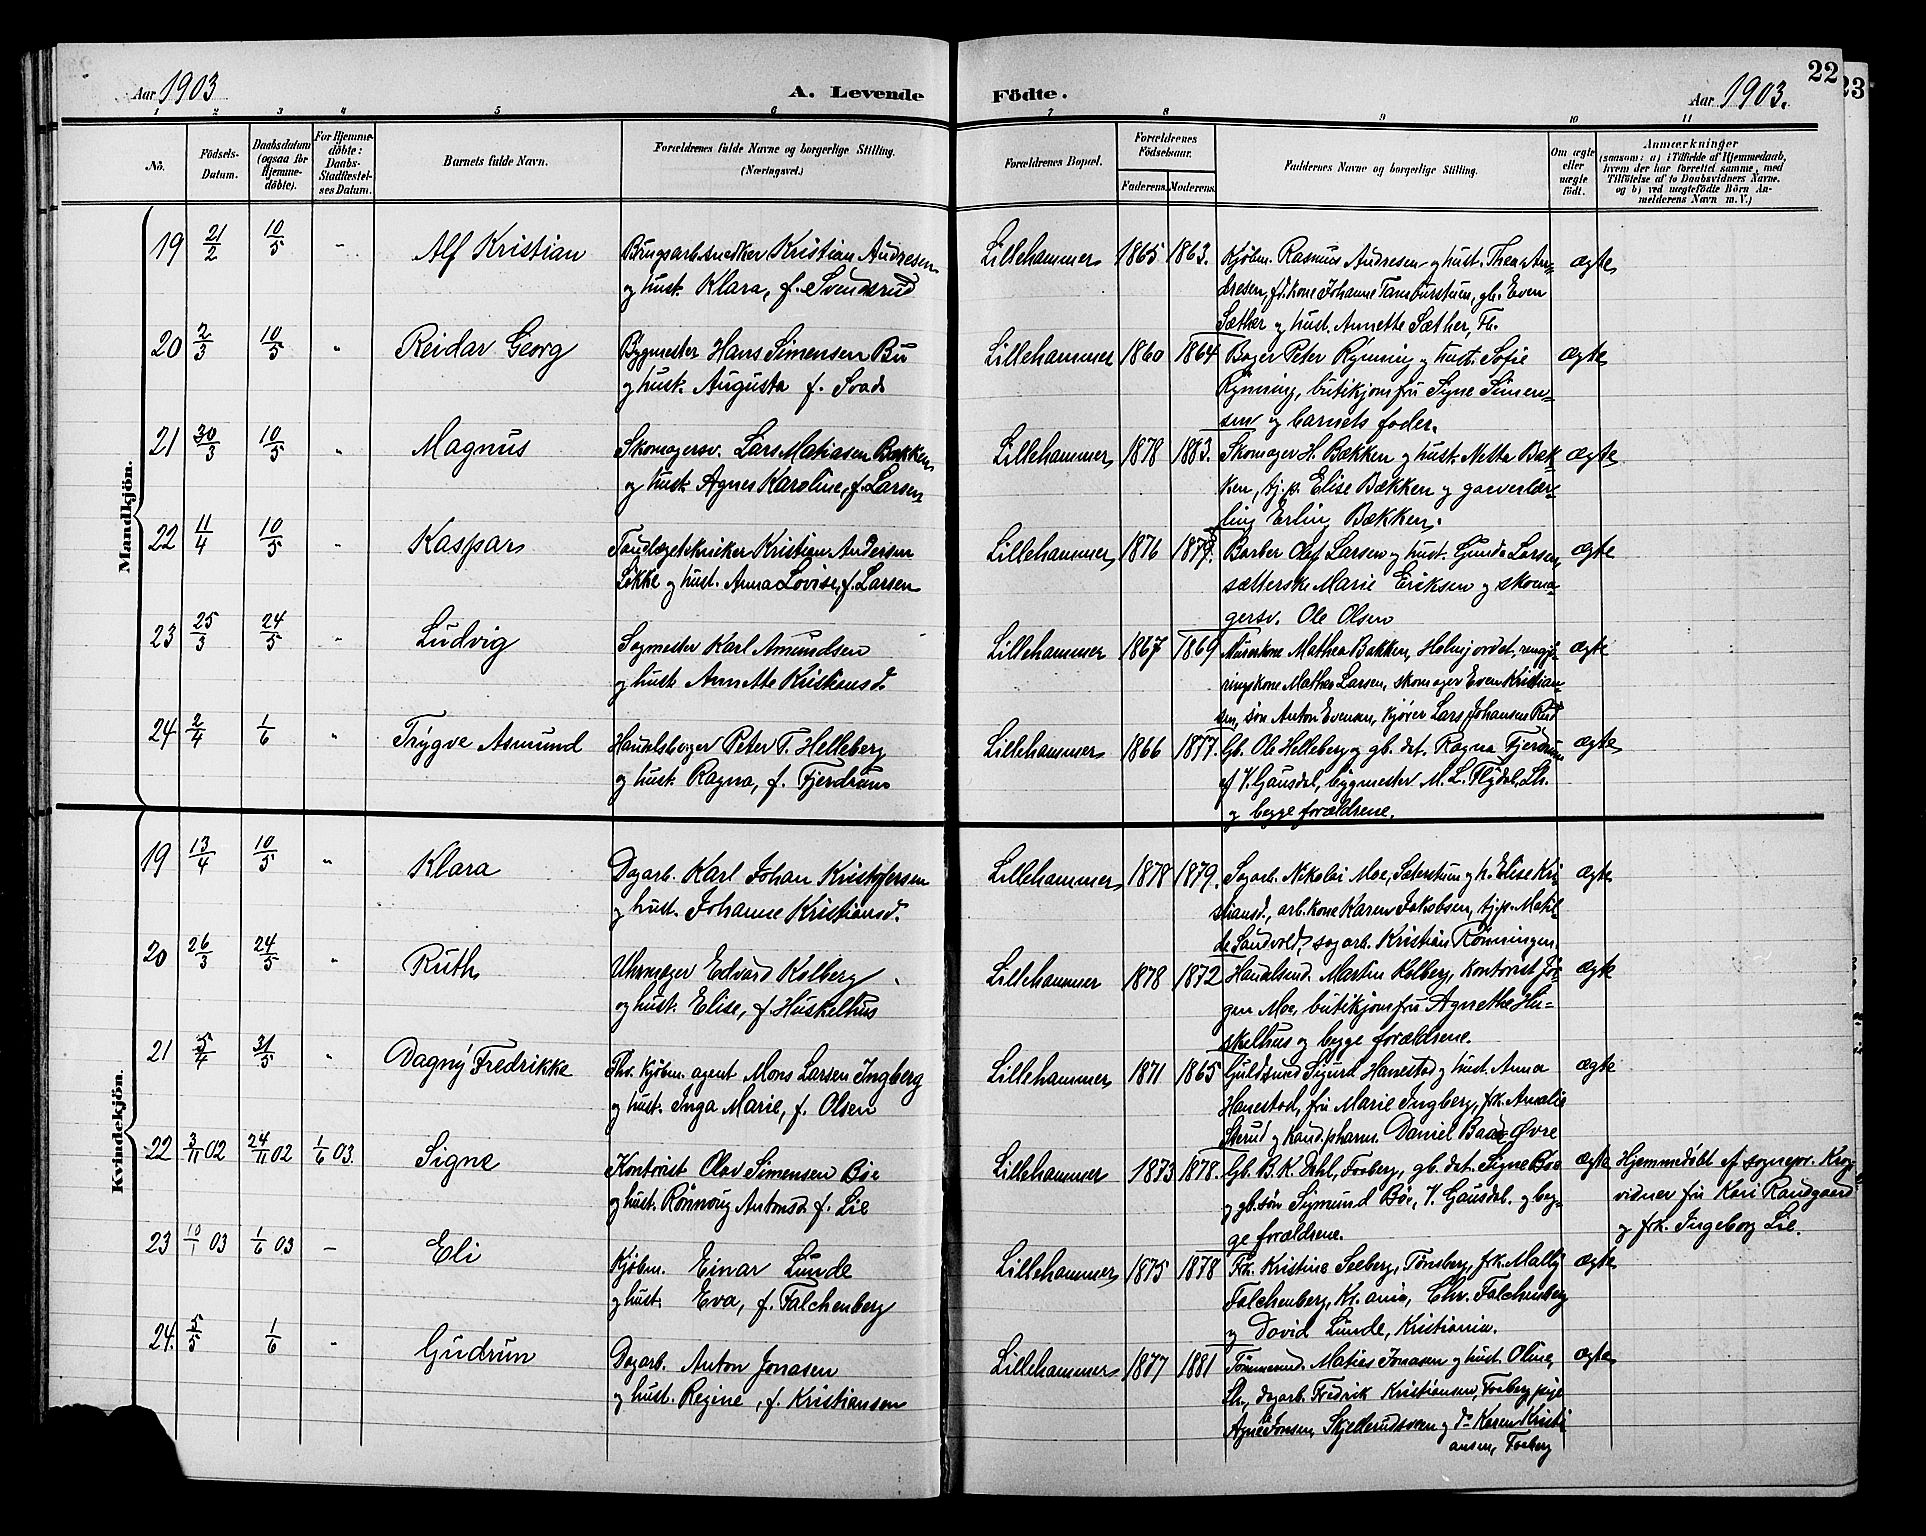 22
23
Aar 1903
A. Levende
Födte.
Aar 1903.
1 2 3 4 5 6 7 8 9 10 11
No.
Födsels-
Datum.
Daabsdatum
(ogsaa för
Hjemme-
döbte).
For Hjemme-
döbte:
Daabs-
Stadfæstel-
ses Datum.
Barnets fulde Navn.
Forældrenes fulde Navne og borgerlige Stilling.
(Næringsvei.)
Forældrenes Bopæl.
Forældrenes
Födselsaar.
Faderens. Moderens.
Faddernes Navne og borgerlige Stilling.
Om ægte
eller
uægte
födt.
Anmærkninger
(saasom: a) i Tilfælde af Hjemmedaab,
hvem der har forrettet samme, med
Tilföielse af to Daabsvidners Navne,
og b) ved uægtefödte Börn An-
melderens Navn m. V.)
Mandkjön.
19 21/2 10/5 - Alf Kristian
Brugsarb. snedker Kristian Andresen
og hust. Klara, f. Svendsrud
Lillehammer 1865 1863.
Kjøbm. Rasmus Andresen og hust. Thea An-
dresen, fh. kone Johanne Tamburstuen, gb. Even
Sæther og hust. Annette Sæther, Fb.
ægte
20 2/3 10/5 " Reidar Georg
Bygmester Hans Simensen Bu
og hust. Augusta f. Svad
Lillehammer 1860 1864
Bager Peter Rynning og hust. Sofie
Rynning, butikjomfru Signe Simen-
sen og barnets fader.
ægte
21 30/3 10/5 " Magnus
Skomagersv. Lars Matiasen Bækken
og hust. Agnes Karoline, f. Larsen
Lillehammer 1878 1883.
Skomager H. Bækken og hust. Netta Bæk-
ken, tj.p. Elise Bækken og garverlær-
ling Erling Bækken.
ægte
22 11/4 10/5 " Kaspar
Tandlægetekniker Kristian Andersen
Løkke og hust. Anna Lovise, f. Larsen
Lillehammer 1876
Barber Olaf Larsen og hust. Gunda Larsen,
sætterske Marie Eriksen og skoma-
gersv. Ole Olsen
ægte
23 25/3 24/5 " Ludvig
Sagmester Karl Amundsen
og hust. Annette Kristensd.
Lillehammer 1867 1869
Murerkone Mathea Bakken, Holmjordet, rengjø-
ringskone Mathea Larsen, skomager Even Kristian-
sen, søn Anton Evensen, kjører Lars Johansen Rud
ægte
24 2/4 1/6 " Trygve Asmund
Handelsbager Peter T. Helleberg
og hust. Ragna, f. Fjerdrum
Lillehammer 1866 1877.
Gb. Ole Helleberg og gb. dat. Ragna Fjerdrum
af V. Gausdal, bygmester M. L. Flydal, Lh.
og begge forældrene.
ægte
Kvindekjön.
19 13/4 10/5 " Klara
Dagarb. Karl Johan Kristofersen
og hust. Johanne Kristiansd.
Lillehammer 1878 1879.
Sagarb. Nikolai Moe, Sæterstuen og h. Elise Kri-
stiansd., arb.kone Karen Jakobsen, tj.p. Matil-
de Sandvold, sagarb. Kristian Rønningen.
ægte
20 26/3 24/5 " Ruth
Uhrmager Edvard Kolberg
og hust. Elise, f. Huskelhus
Lillehammer 1878 1872
Handelsmd. Martin Kolberg, kontorist Jør-
gen Moe, butikjomfru Agnethe Hu-
skelhus og begge forældrene.
ægte
21 5/4 31/5 " Dagny Fredrikke
Fhv. kjøbm. agent Mons Larsen Ingberg
og hust. Inga Marie, f. Olsen
Lillehammer 1871 1865
Guldsmed Sigurd Hanestad og hust. Anna
Hanestad, fru Marie Ingberg, frk. Amalie
Sterud og kand. pharm. Daniel Baade Øvre
ægte
22 3/11 02 24/11 02 1/6 03. Signe
Kontorist Olav Simensen Bøe
og hust. Rønnaug Antonsd. f. Lie
Lillehammer 1873 1878.
Gb. B. K. Dahl, Forberg, gb. dat. Signe Bøe
og gb. søn Sigmund Bøe, V. Gausdal. og beg-
ge forældrene.
ægte
Hjemmedøbt af sognepr. Krog
vidner fru Kari Randgaard
og frk. Ingeborg Lie.
23 10/1 03 1/6 03 - Eli
Kjøbm. Einar Lunde
og hust. Eva, f. Falchenberg
Lillehammer 1875 1878
Frk. Kristine Seeberg, Tønsberg, frk. Mally
Falchenberg, Kr.ania, Chr. Falchenberg
og David Lunde, Kristiania.
ægte
24. 5/5 1/6 " Gudrun
Dagarb. Anton Jonasen
og hust. Regine, f. Kristiansen
Lillehammer 1877 1881
Tømmermd. Matias Jonasen og hust. Oline,
Lh., dagarb. Fredrik Kristiansen, Forberg pige
Agne Jonsen, Skjellerudsveen og do Karen Kristi-
ansen, Forberg
ægte